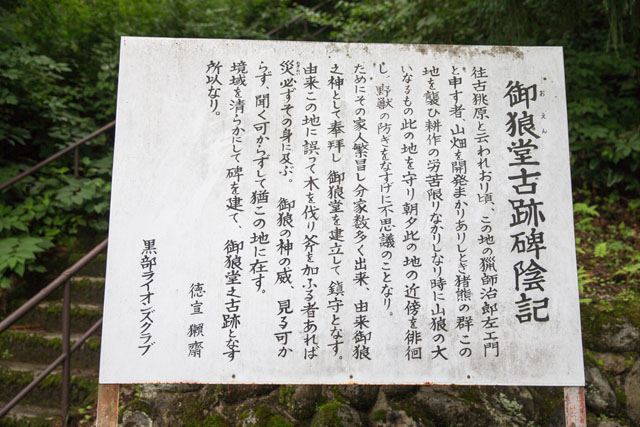 御狼堂古跡碑陰記
おおえん
往古狨原と云われおり頃、この地の猟師治郎左エ門
と申す者、山畑を開発まかりありしとき猪熊の群この
地を襲ひ耕作の労苦限りなかりしなり時に山狼の大
いなるもの此の地を守り朝夕此の地の近傍を徘徊
し、野獣の防ぎをなすげに不思議のことなり。
ためにその家人繁昌し分家数多く出来、由来御狼
之神として奉拜し御狼堂を建立して鎮守となす。
由来この地に誤って木を伐り斧を加ふる者あれば
災必ずその身に及ぶ。御狼の神の威、見る可か
らず、聞く可からずして猶この地に在す。
境域を清らかにして碑を建て、御狼堂古跡となす
所以なり。
徳宣獺齋
黒部ライオンズクラブ